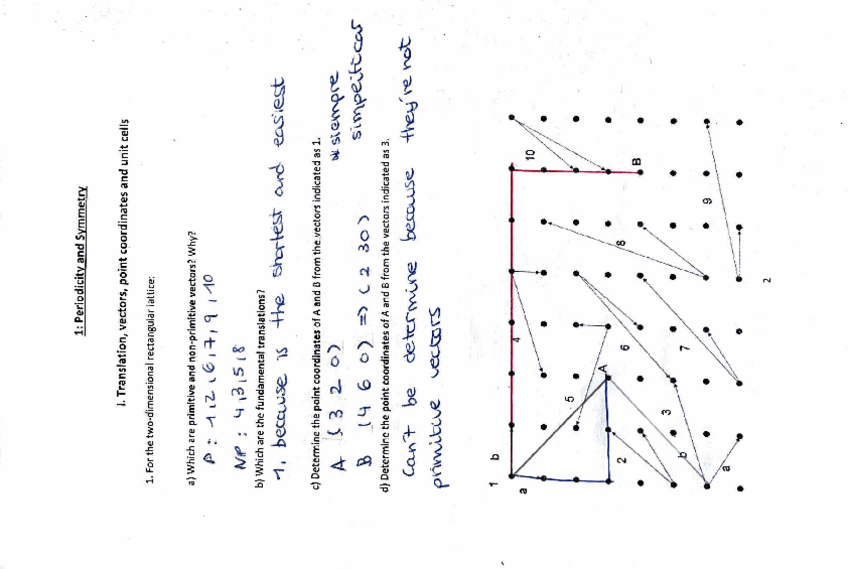 1: Periodicity and Symmetry
I. Translation, vectors, point coordinates and unit cells
1. For the two-dimensional rectangular lattice:
a) Which are primitive and non-primitive vectors? Why?
P: 1,2,6,7,9,10
NP: 4,3,5,8
b) Which are the fundamental translations?
1, because is the shortest and easiest
c) Determine the point coordinates of A and B from the vectors indicated as 1.
A (3 2 0) * siempre
B (4 6 0) => (2 3 0) simpeificar
d) Determine the point coordinates of A and B from the vectors indicated as 3.
Can't be determine because they're not
primitive vectors
1 b
a
4
10
B
5
A
6
8
2
3
7
9
b
a
2